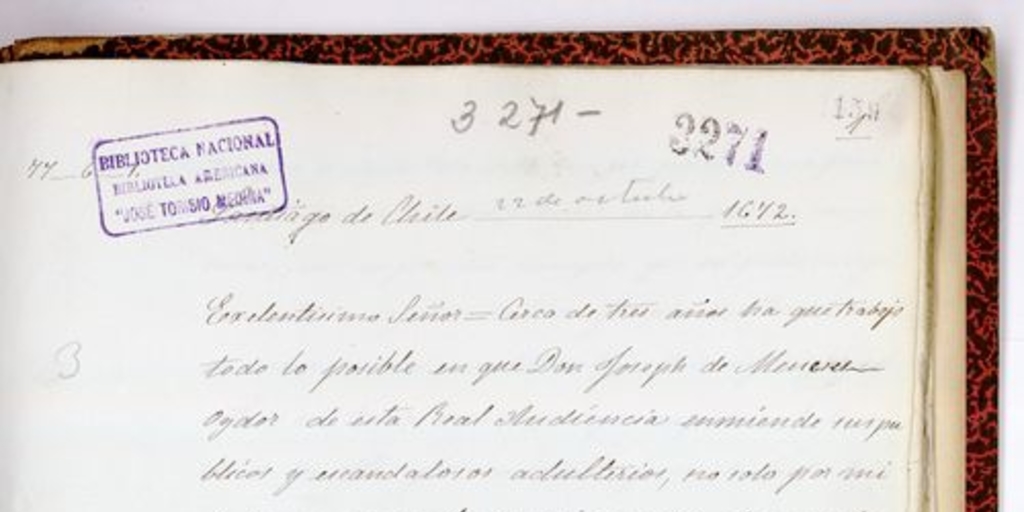 3 271 –
3271
BIBLIOTECA NACIONAL
BIBLIOTECA AMERICANA
"JOSÉ TORIBIO MEDINA"
Santiago de Chile 22 de octubre 1672.
Exelentisimo Señor = Cerca de tres años ha que trabajo
todo lo posible en que Don Joseph de Meneses
Oydor de esta Real Audiencia enmiende sus pu
blicos y escandalosos adulterios, no solo por mi
3